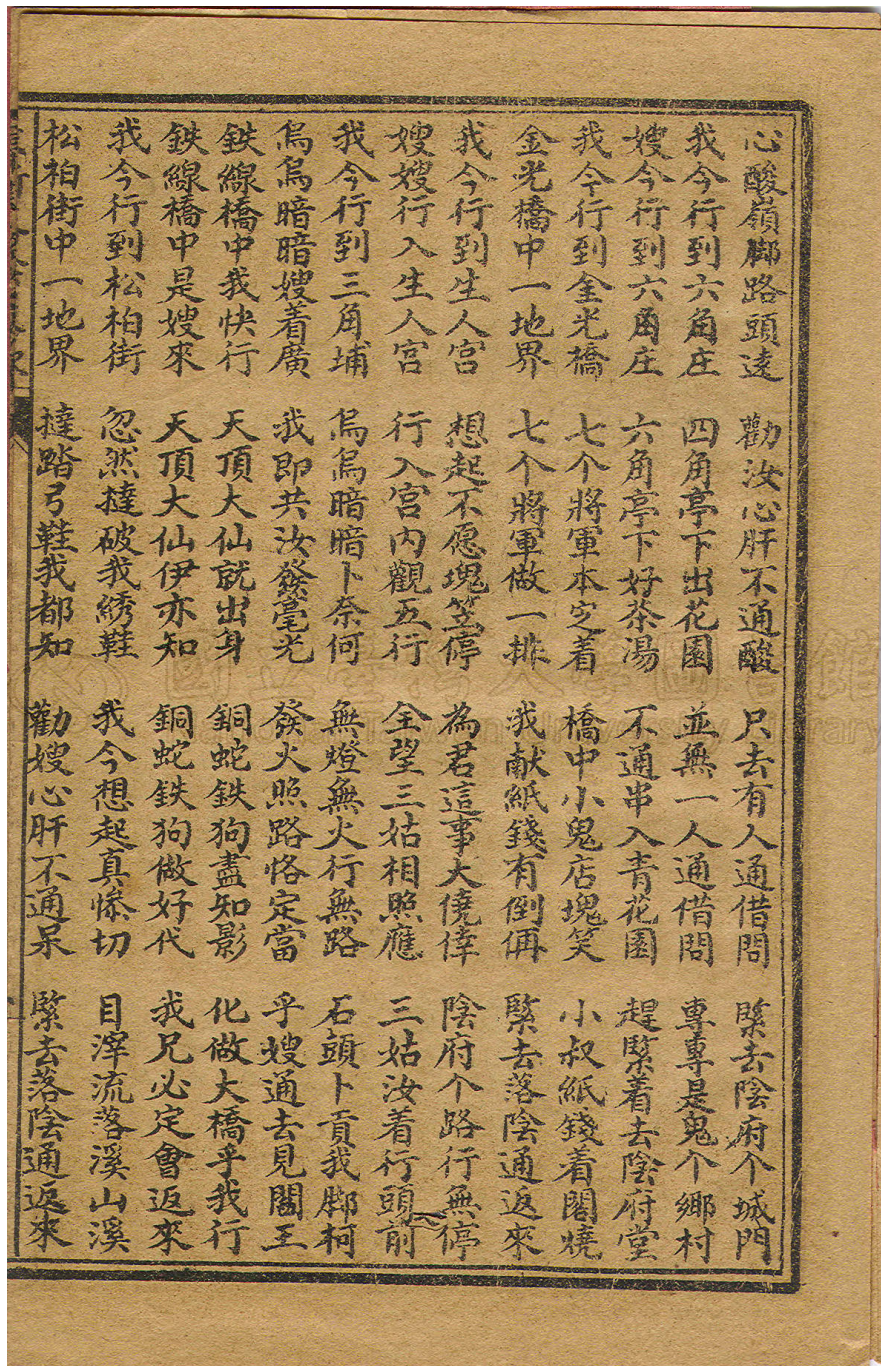 心酸嶺脚路頭遠 勸汝心肝不通酸 只去有人通借問 緊去陰府个城門
我今行到六角庄 四角亭下出花園 並無一人通借問 專專是鬼个鄉村
嫂今行到六角庄 六角亭下好茶湯 不通串入青花園 趕緊着去陰府堂
我今行到金光橋 七个將軍本定着 橋中小鬼店塊笑 小叔紙錢着閣燒
金光橋中一地界 七个將軍做一排 我献紙錢有倒俩 緊去落陰通返來
我今行到生人宮 想起不愿塊笠停 為君這事大僥倖 陰府个路行無停
嫂嫂行入生人宮 行入宮內觀五行 全望三姑相照應 三姑汝着行頭前
我今行到三角埔 烏烏暗暗卜奈何 無燈無火行無路 石頭卜貢我脚柯
烏烏暗暗嫂着廣 我即共汝發毫光 發火照路恪定當 乎嫂通去見閻王
鉄線橋中我快行 天頂大仙就出身 銅蛇鉄狗盡知影 化做大橋乎我行
鉄線橋中是嫂來 天頂大仙伊亦知 銅蛇鉄狗做好代 我兄必定會返來
我今行到松柏街 忽然撻破我綉鞋 我今想起真慘切 目滓流落溪山溪
松柏街中一地界 撻踏弓鞋我都知 勸嫂心肝不通呆 緊去落陰通返來